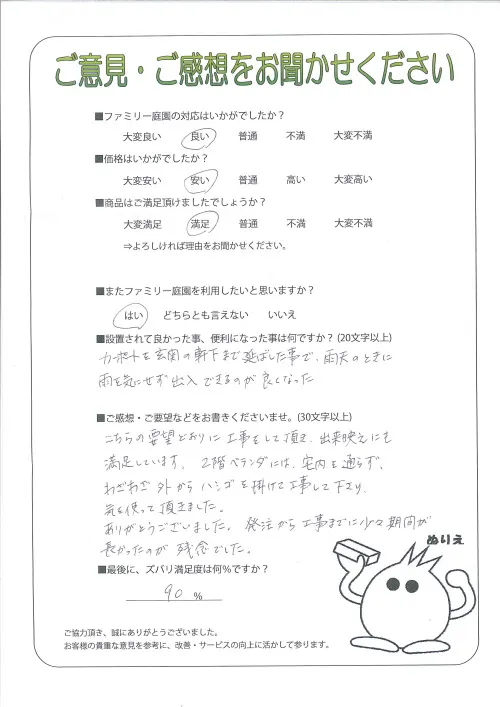 ご意見・ご感想をお聞かせください
■ファミリー庭園の対応はいかがでしたか？
大変良い　良い　普通　不満　大変不満
■価格はいかがでしたか？
大変安い　安い　普通　高い　大変高い
■商品はご満足頂けましたでしょうか？
大変満足　満足　普通　不満　大変不満
⇒よろしければ理由をお聞かせください。
■またファミリー庭園を利用したいと思いますか？
はい　どちらとも言えない　いいえ
■設置されて良かった事、便利になった事は何ですか？(20文字以上)
カーポートを玄関の軒下まで延ばした事で、雨天のときに
雨を気にせず出入できるのが良くなった
■ご感想・ご要望などをお書きくださいませ。(30文字以上)
こちらの要望どおりに工事をして頂き、出来映えにも
満足しています。2階ベランダには、宅内を通らず、
わざわざ外からハシゴを掛けて工事して下さり、
気を使って頂きました。
ありがとうございました。発注から工事までに少々期間が
長かったのが残念でした。
ぬりえ
■最後に、ズバリ満足度は何%ですか？
90 %
ご協力頂き、誠にありがとうございました。
お客様の貴重な意見を参考に、改善・サービスの向上に活かして参ります。